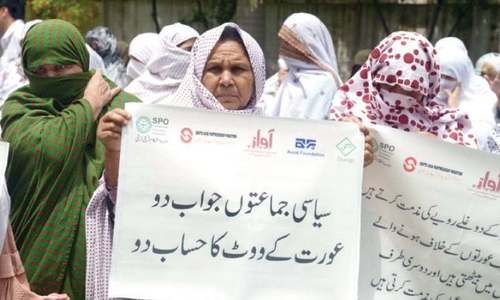 SPO
آواز
Awaz Foundation
سیاسی جماعتوں جواب دو
عورت کے ووٹ کا حساب دو
SPO
آواز
کے دوغلے رویے کی مذمت کرتے ہیں
عورتوں کے خلاف ہونے والے
میں بیٹھتی ہیں اور دوسری طرف
کی مذمت کرتی ہیں